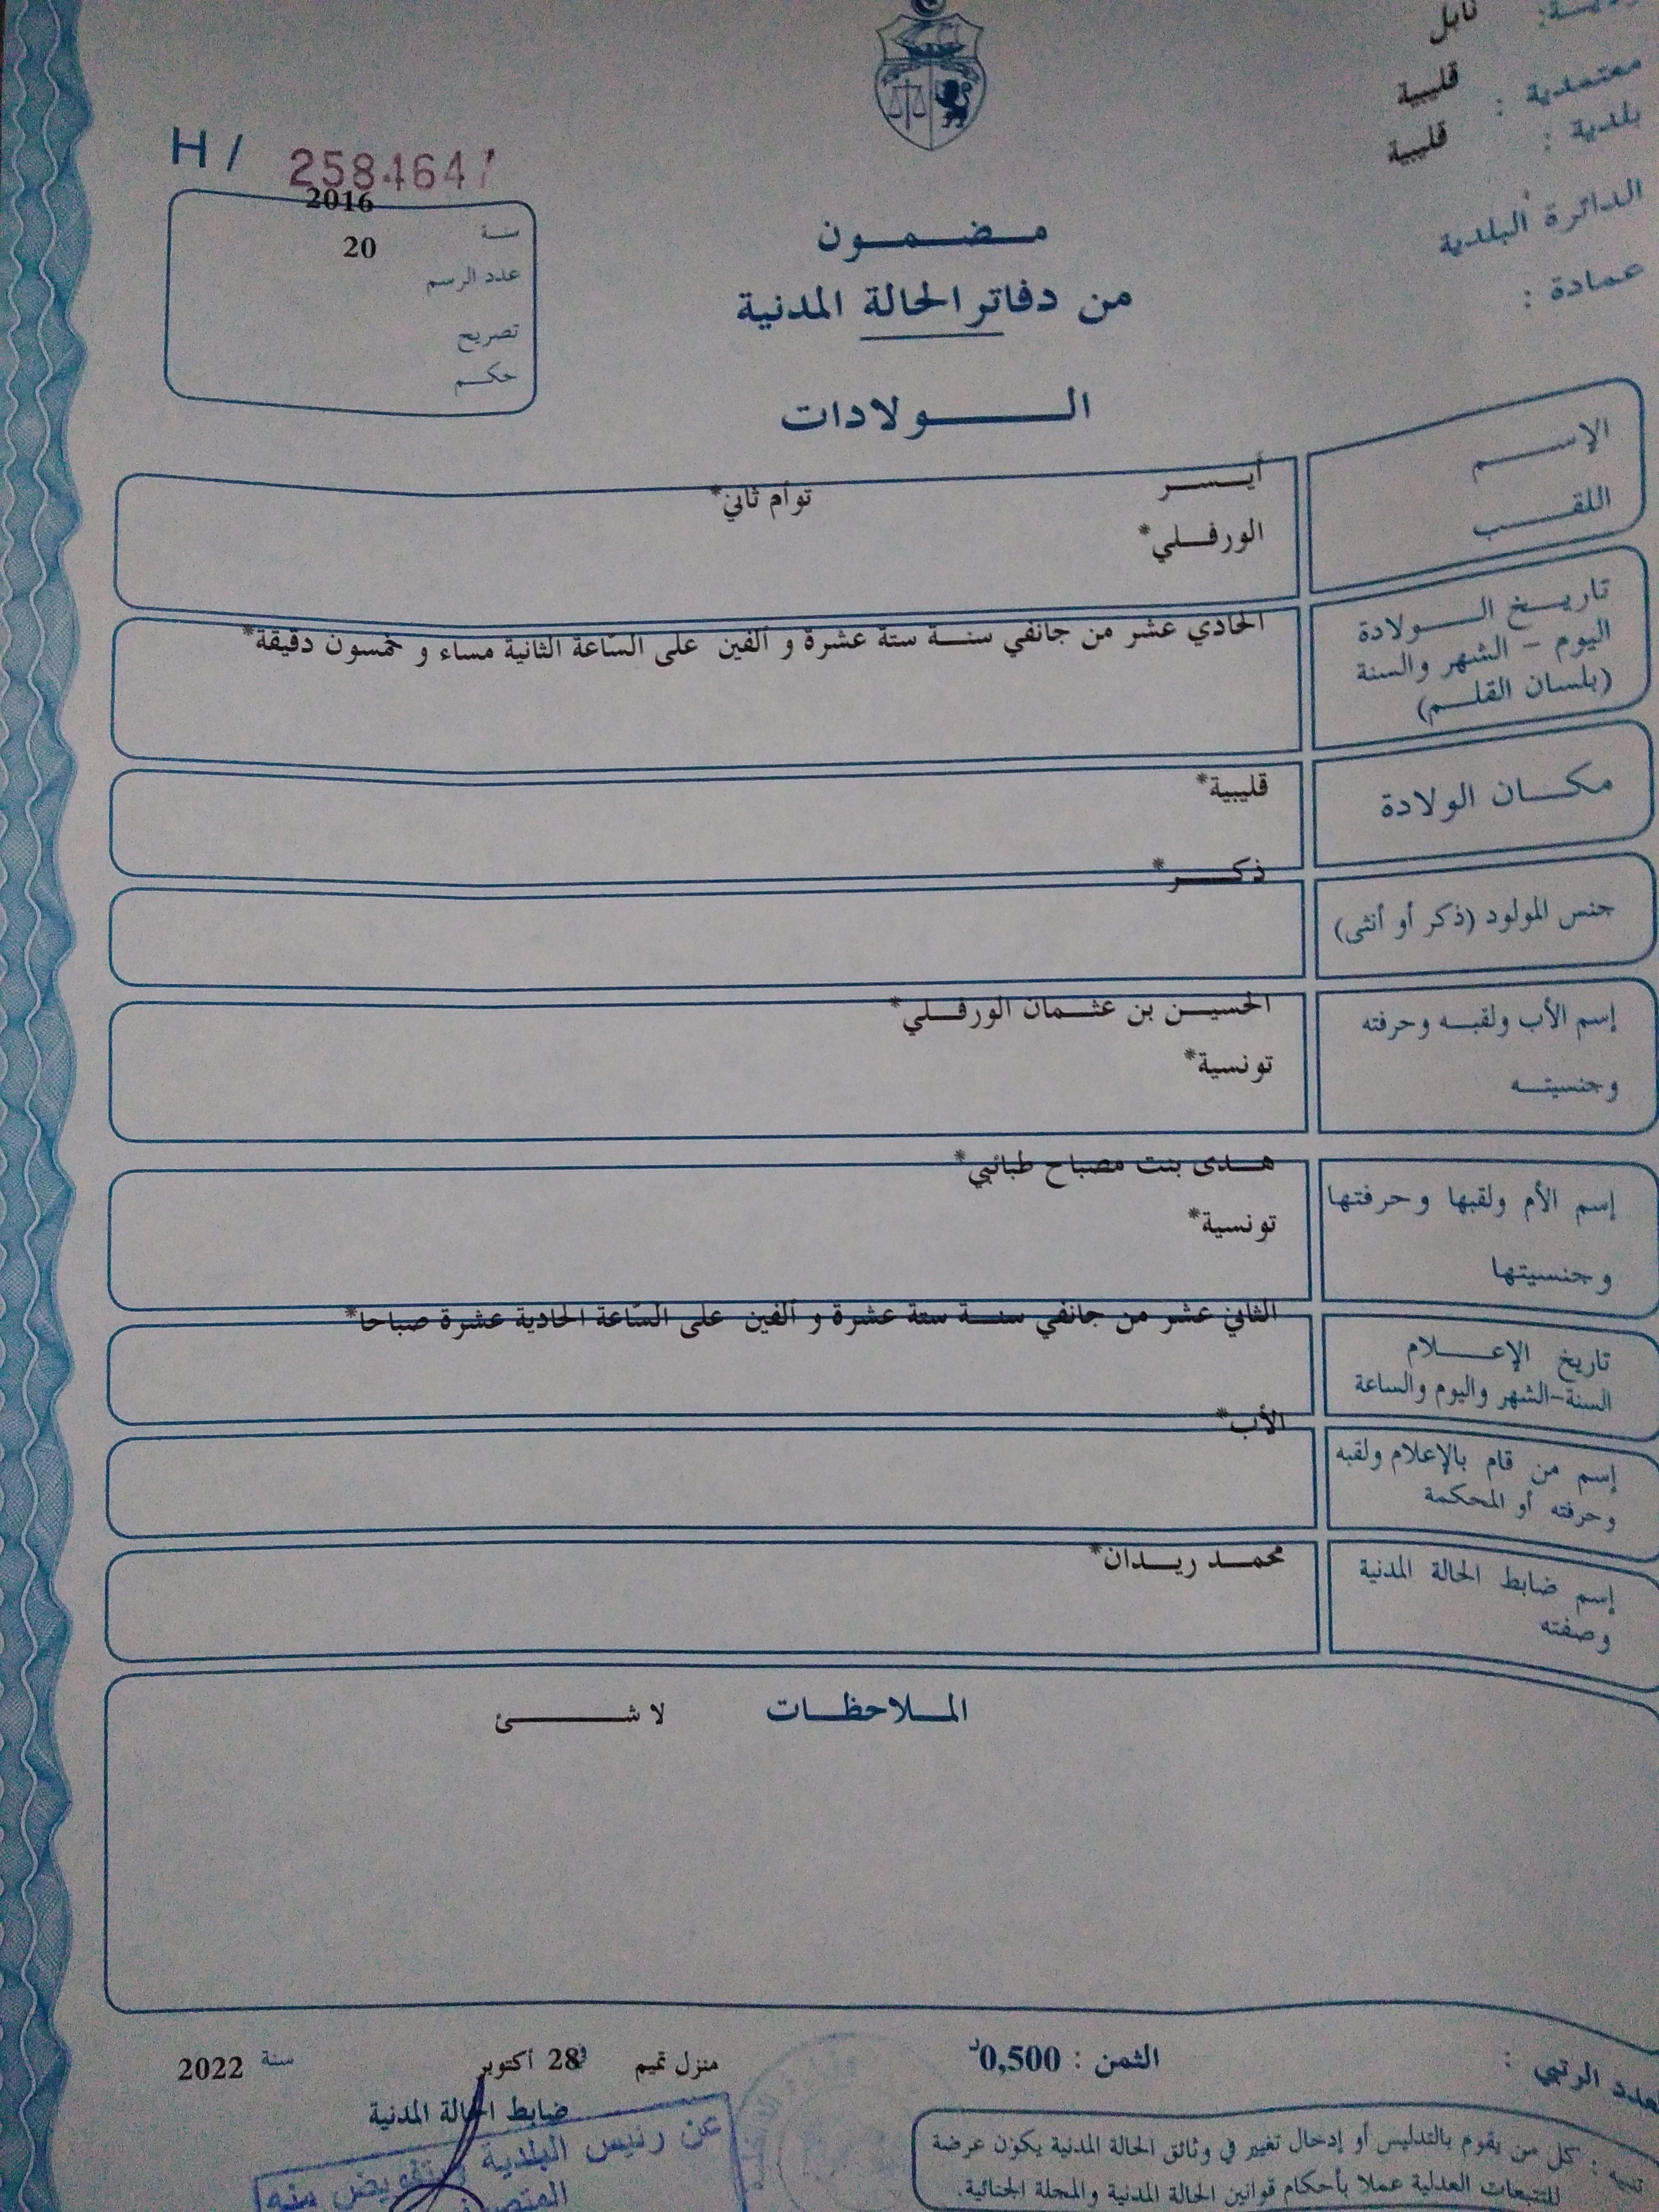 نابل
معتمدية : قليبية
بلدية : قليبية
الدائرة البلدية
عمادة :
H /
2016
سنة
20
عدد الرسم
تصريح
حكم
مضمون
من دفاتر الحالة المدنية
الولادات
الإسم أيسر توأم ثاني*
اللقب الورفلي*
تاريخ الولادة
اليوم - الشهر والسنة
(بلسان القلم)
الحادي عشر من جانفي سنة ستة عشرة و ألفين على السّاعة الثانية مساء و خمسون دقيقة*
مكان الولادة قليبية*
جنس المولود (ذكر أو أنثى) ذكر*
إسم الأب ولقبه وحرفته الحسين بن عثمان الورفلي*
وجنسيته تونسية*
إسم الأم ولقبها وحرفتها هدى بنت مصباح طبائبي*
وجنسيتها تونسية*
تاريخ الإعلام
السنة-الشهر واليوم والساعة
الثاني عشر من جانفي سنة ستة عشرة و ألفين على السّاعة الحادية عشرة صباحا*
إسم من قام بالإعلام ولقبه
وحرفته أو المحكمة
الأب*
إسم ضابط الحالة المدنية
وصفته
محمد ريدان*
الملاحظات لا شئ
العدد الرتبي :
الثمن : 0,500د
منزل تميم 28 أكتوبر سنة 2022
ضابط الحالة المدنية
عن رئيس البلدية و بتفويض منه
تنبيه : كل من يقوم بالتدليس أو إدخال تغيير في وثائق الحالة المدنية يكون عرضة
للتتبعات العدلية عملا بأحكام قوانين الحالة المدنية والمجلة الجنائية.